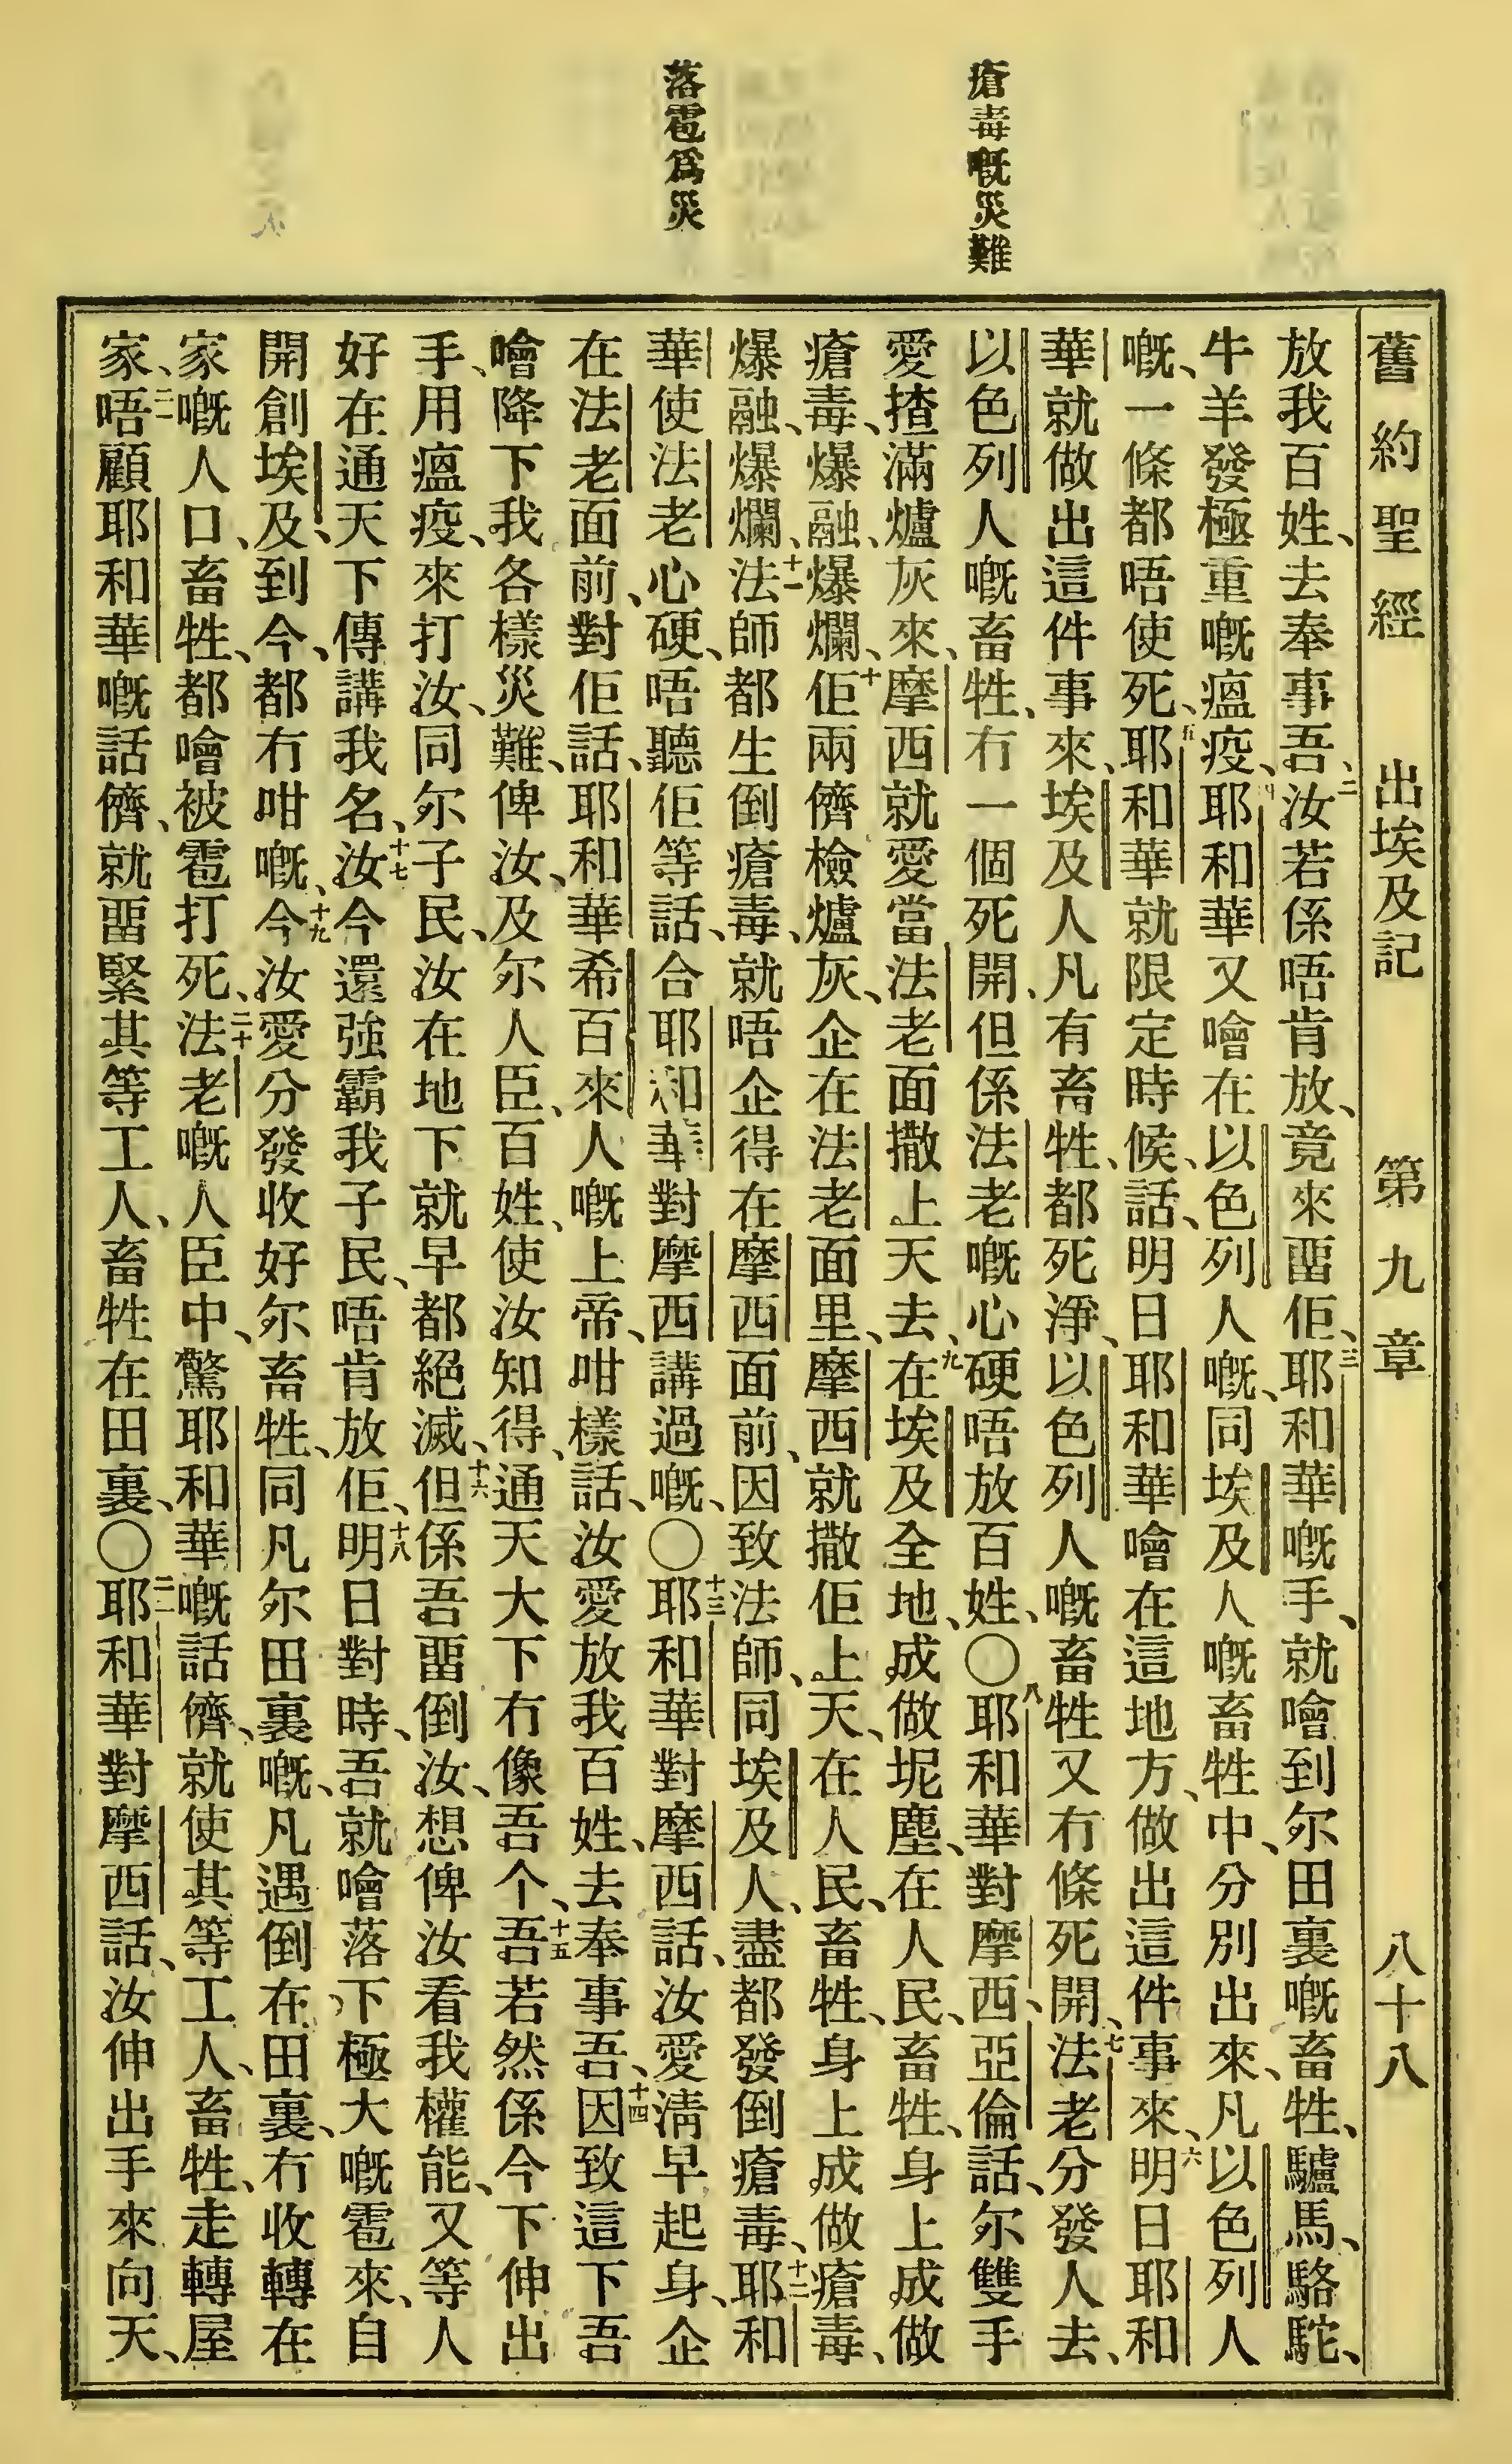 瘡毒嘅災難
落雹爲災
舊約聖經　出埃及記　第九章　八十八
放我百姓、去奉事吾、二汝若係唔肯放、竟來畱佢、三耶和華嘅手、就噲到尔田裏嘅畜牲、驢馬、駱駝、
牛羊發極重嘅瘟疫、四耶和華又噲在以色列人嘅、同埃及人嘅畜牲中、分別出來、凡以色列人
嘅、一條都唔使死、五耶和華就限定時候、話、明日耶和華噲在這地方、做出這件事來、六明日耶和
華就做出這件事來、埃及人凡有畜牲、都死淨、以色列人嘅畜牲又冇條死開、七法老分發人去、
以色列人嘅畜牲、冇一個死開、但係法老嘅心硬唔放百姓、○八耶和華對摩西、亞倫話、尔雙手
愛揸滿爐灰來、摩西就愛當法老面撒上天去、九在埃及全地、成做坭塵、在人民、畜牲、身上成做
瘡毒、爆融、爆爛、十佢兩儕檢爐灰、企在法老面里、摩西就撒佢上天、在人民、畜牲、身上成做瘡毒、
爆融、爆爛、十一法師都生倒瘡毒、就唔企得在摩西面前、因致法師、同埃及人、盡都發倒瘡毒、十二耶和
華使法老心硬、唔聽佢等話、合耶和華對摩西講過嘅、○十三耶和華對摩西話、汝愛淸早起身、企
在法老面前、對佢話、耶和華希百來人嘅上帝、咁樣話、汝愛放我百姓、去奉事吾、十四因致這下吾
噲降下我各樣災難、俾汝、及尔人臣、百姓、使汝知得、通天大下冇像吾个、十五吾若然係今下伸出
手、用瘟疫、來打汝、同尔子民、汝在地下就早都絕滅、十六但係吾畱倒汝、想俾汝看我權能、又等人
好在通天下傳講我名、十七汝今還強霸我子民、唔肯放佢、十八明日對時、吾就噲落下極大嘅雹來、自
開創埃及、到今、都冇咁嘅、十九今汝愛分發收好尔畜牲、同凡尔田裏嘅、凡遇倒在田裏、冇收轉在
家嘅人口、畜牲、都噲被雹打死、二十法老嘅人臣中、驚耶和華嘅話儕、就使其等工人、畜牲、走轉屋
家、二一唔顧耶和華嘅話儕、就畱緊其等工人、畜牲在田裏、○二二耶和華對摩西話、汝伸出手來向天、